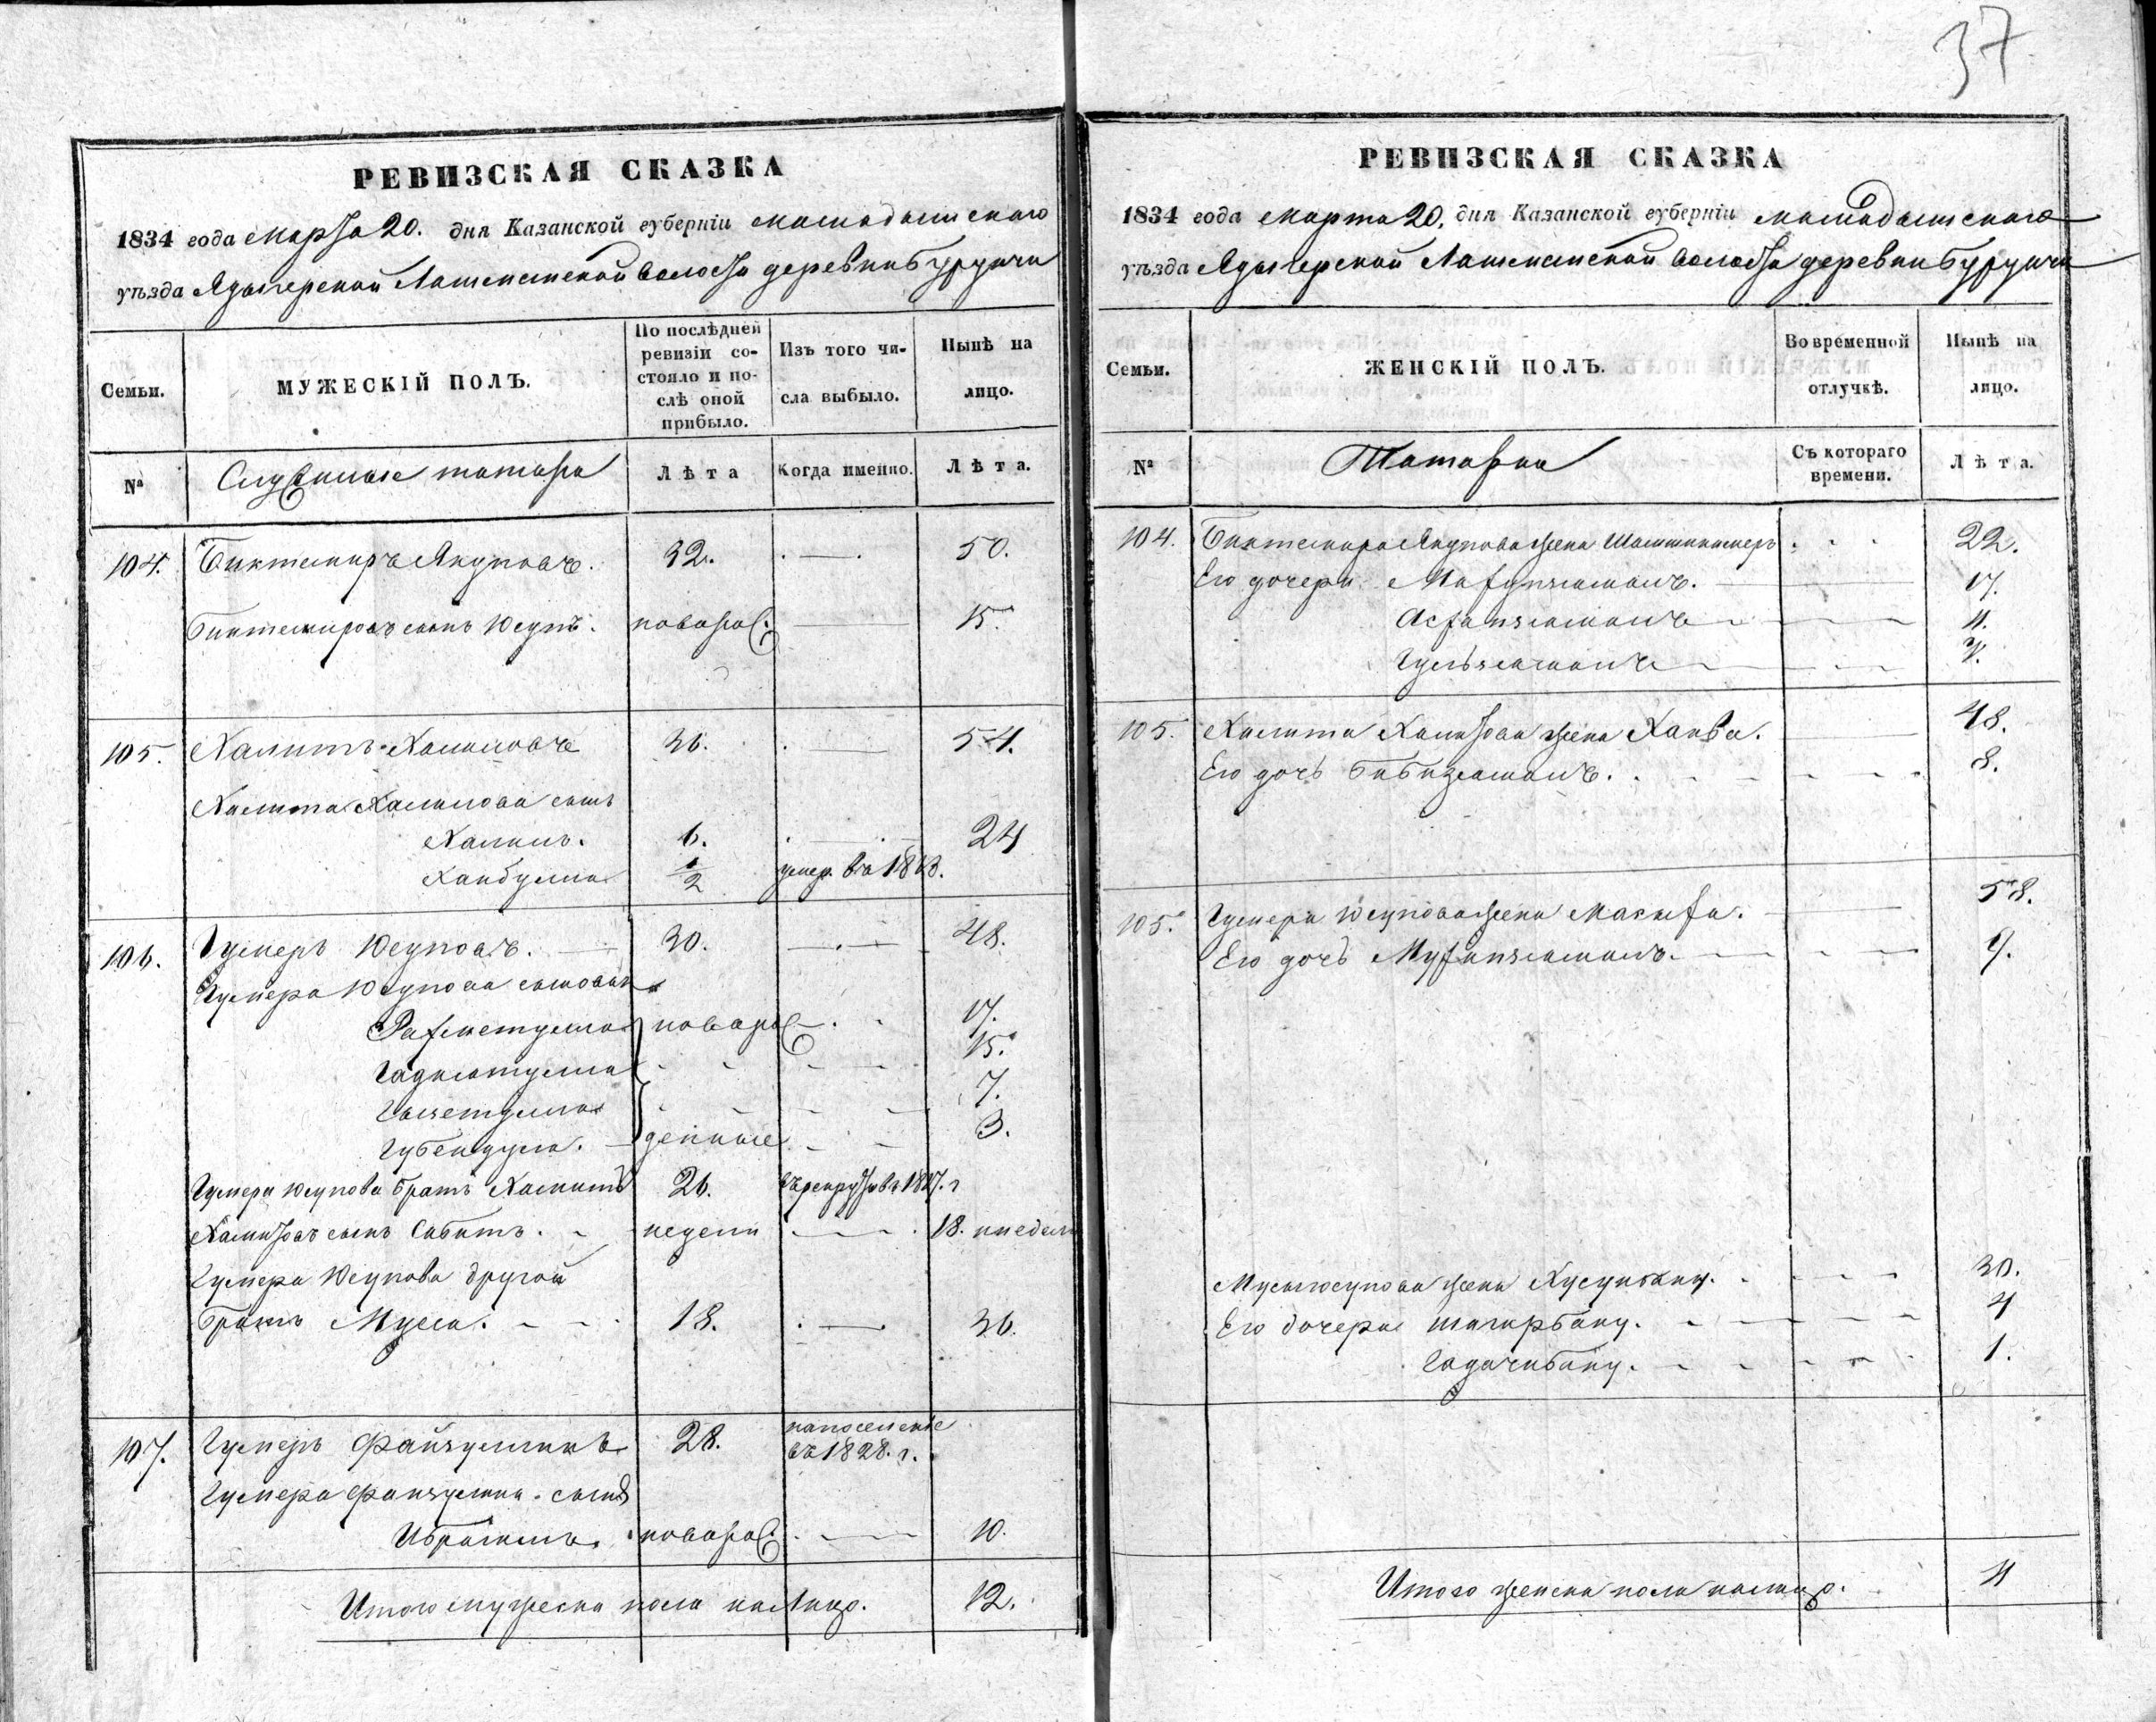 37
РЕВИЗСКАЯ СКАЗКА
1834 года Марта 20. дня Казанской губерніи Мамадышскаго
уѣзда Ядыгерской Лашманской волости деревни Бурунчи
Семьи.
МУЖЕСКІЙ ПОЛЪ.
По послѣдней ревизіи состояло и послѣ оной прибыло.
Изъ того числа выбыло.
Нынѣ на лицо.
№
Служилые татара
Лѣта
Когда именно.
Лѣта.
104. Биктемиръ Якуповъ. 32. 50.
Биктемировъ сынъ Юсупъ. новорож. 15.
105. Халитъ Халиловъ 36. 54.
Халита Халилова сынъ
Халилъ. 6. 24
1/2 умер. въ 1813.
106. Гумеръ Юсуповъ. 30. 48.
Гумера Юсупова сыновья
Рахметулла новорож 17.
Гадиатулла 15.
7.
Губейдулла. денные 3.
Гумера Юсупова братъ Хамитъ 26. въ рекруты въ 1817. г
Хамитовъ сынъ Сабитъ. недели 18. и недели
Гумера Юсупова другой
братъ Мусса. 18. 36.
107. Гумеръ Файзуллинъ 28. на поселение
въ 1828. г.
Гумера Файзуллина сынъ
Ибрагимъ. новорож. 10.
Итого мужеска пола на лицо. 12.
РЕВИЗСКАЯ СКАЗКА
1834 года Марта 20. дня Казанской губерніи Мамадышскаго
уѣзда Ядыгерской Лашманской волости деревни Бурунчи
Семьи.
ЖЕНСКІЙ ПОЛЪ.
Во временной отлучкѣ.
Нынѣ на лицо.
№
Татарки
Съ котораго времени.
Лѣта.
104. Биктемира Якупова жена 22.
Его дочери 17.
11.
Гульзямалъ
105. Халита жена 48.
Его дочь Бибизямалъ. 8.
105. Гумера Юсупова жена 58.
Его дочь 9.
Мусы Юсупова жена 30.
Его дочери 4
1.
Итого женска пола на лицо. 11